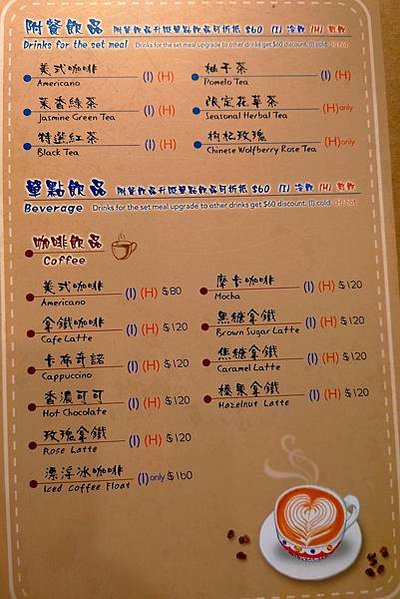 附餐飲品 附餐飲品升級單點飲品可折抵 $60 (I) 冷飲 (H) 熱飲
Drinks for the set meal Drinks for the set meal upgrade to other drinks get $60 discount. (I) cold. (H) hot
美式咖啡 (I) (H) 柚子茶 (I) (H)
Americano Pomelo Tea
茉香綠茶 (I) (H) 限定花草茶 (H)only
Jasmine Green Tea Seasonal Herbal Tea
特選紅茶 (I) (H) 枸杞玫瑰 (H)only
Black Tea Chinese Wolfberry Rose Tea
單點飲品 附餐飲品升級單點飲品可折抵 $60 (I) 冷飲 (H) 熱飲
Beverage Drinks for the set meal upgrade to other drinks get $60 discount. (I) cold. (H) hot
咖啡飲品
Coffee
美式咖啡 (I) (H) $80
Americano
拿鐵咖啡 (I) (H) $120
Cafe Latte
卡布奇諾 (I) (H) $120
Cappuccino
香濃可可 (I) (H) $120
Hot Chocolate
玫瑰拿鐵 (I) (H) $120
Rose Latte
漂浮冰咖啡 (I)only $160
Iced Coffee Float
摩卡咖啡 (I) (H) $120
Mocha
黑糖拿鐵 (I) (H) $120
Brown Sugar Latte
焦糖拿鐵 (I) (H) $120
Caramel Latte
榛果拿鐵 (I) (H) $120
Hazelnut Latte